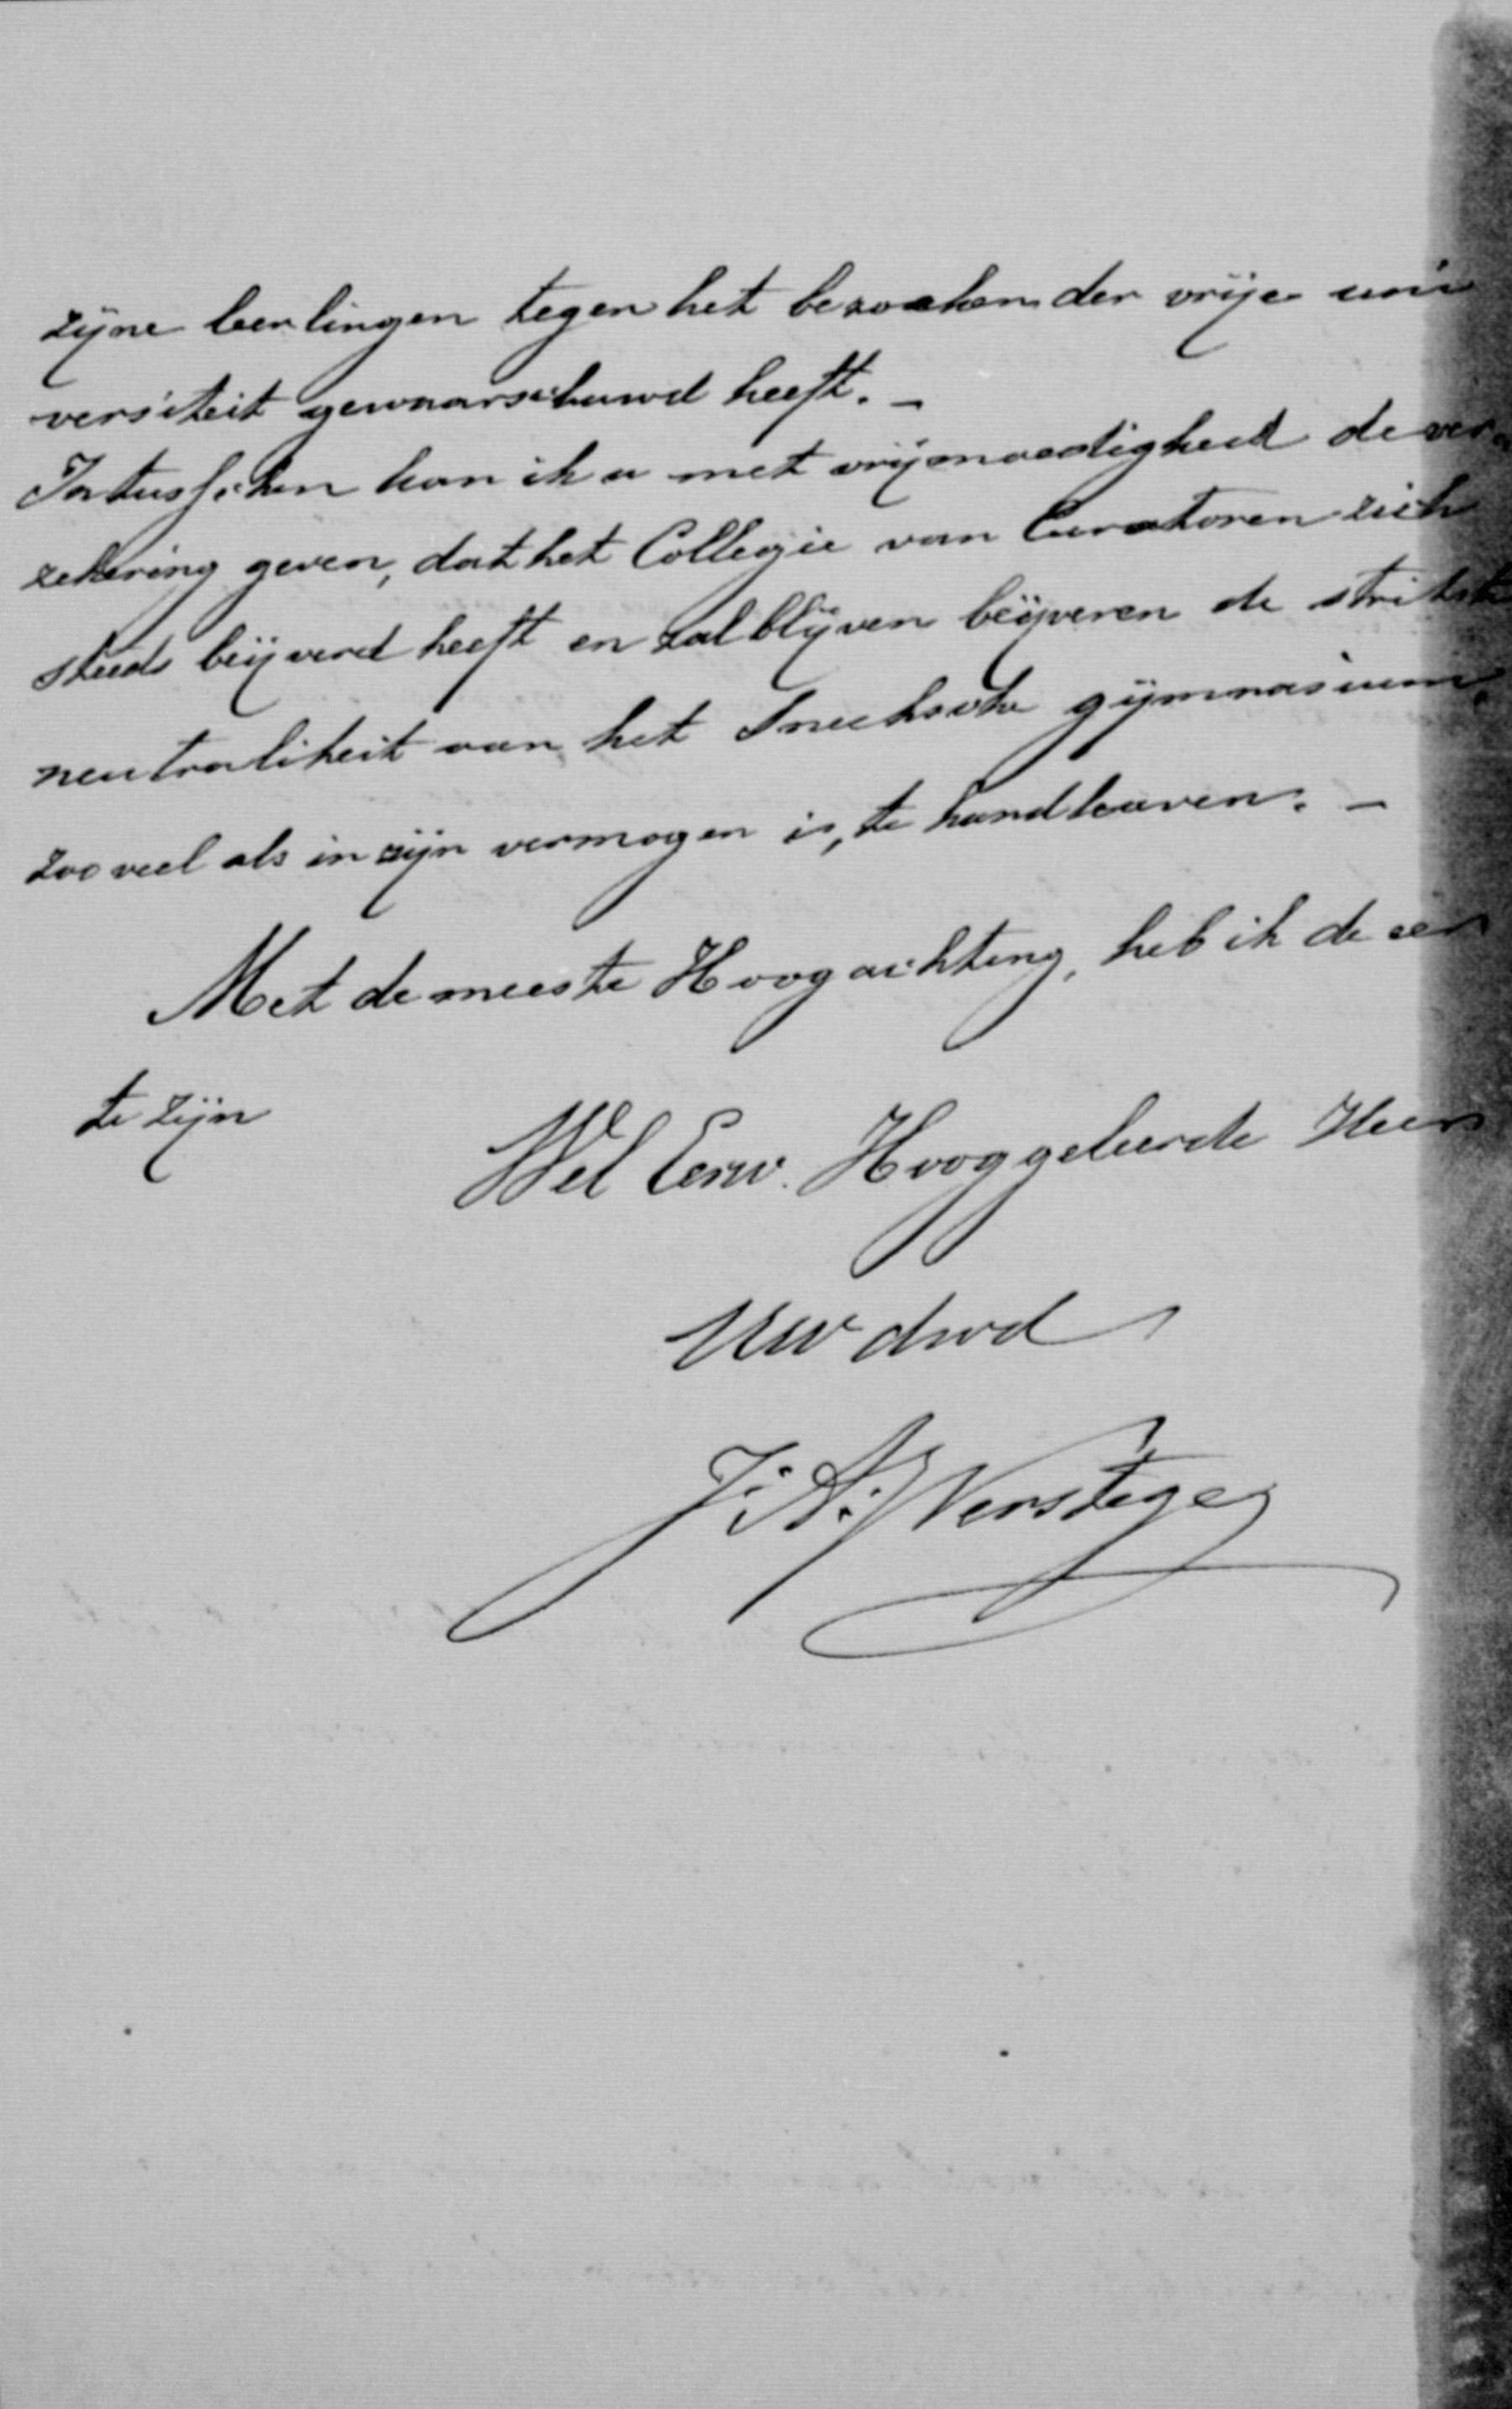 zijne leerlingen tegen het bezoeken der vrije uni
versiteit gewaarschuwd heeft. –
Intusschen kan ik u met vrijmoedigheid de ver-
zekering geven, dat het Collegie van Curatoren zich
steeds beijverd heeft en zal blijven beijveren de strikste
neutraliteit van het Sneeksche gymnasium,
zooveel als in zijn vermogen is, te handhaven. –
Met de meeste Hoogachting, heb ik de eer
te zijn
Wel Eerw. Hooggeleerde Heer
Uw dwd
J. A. Verstege